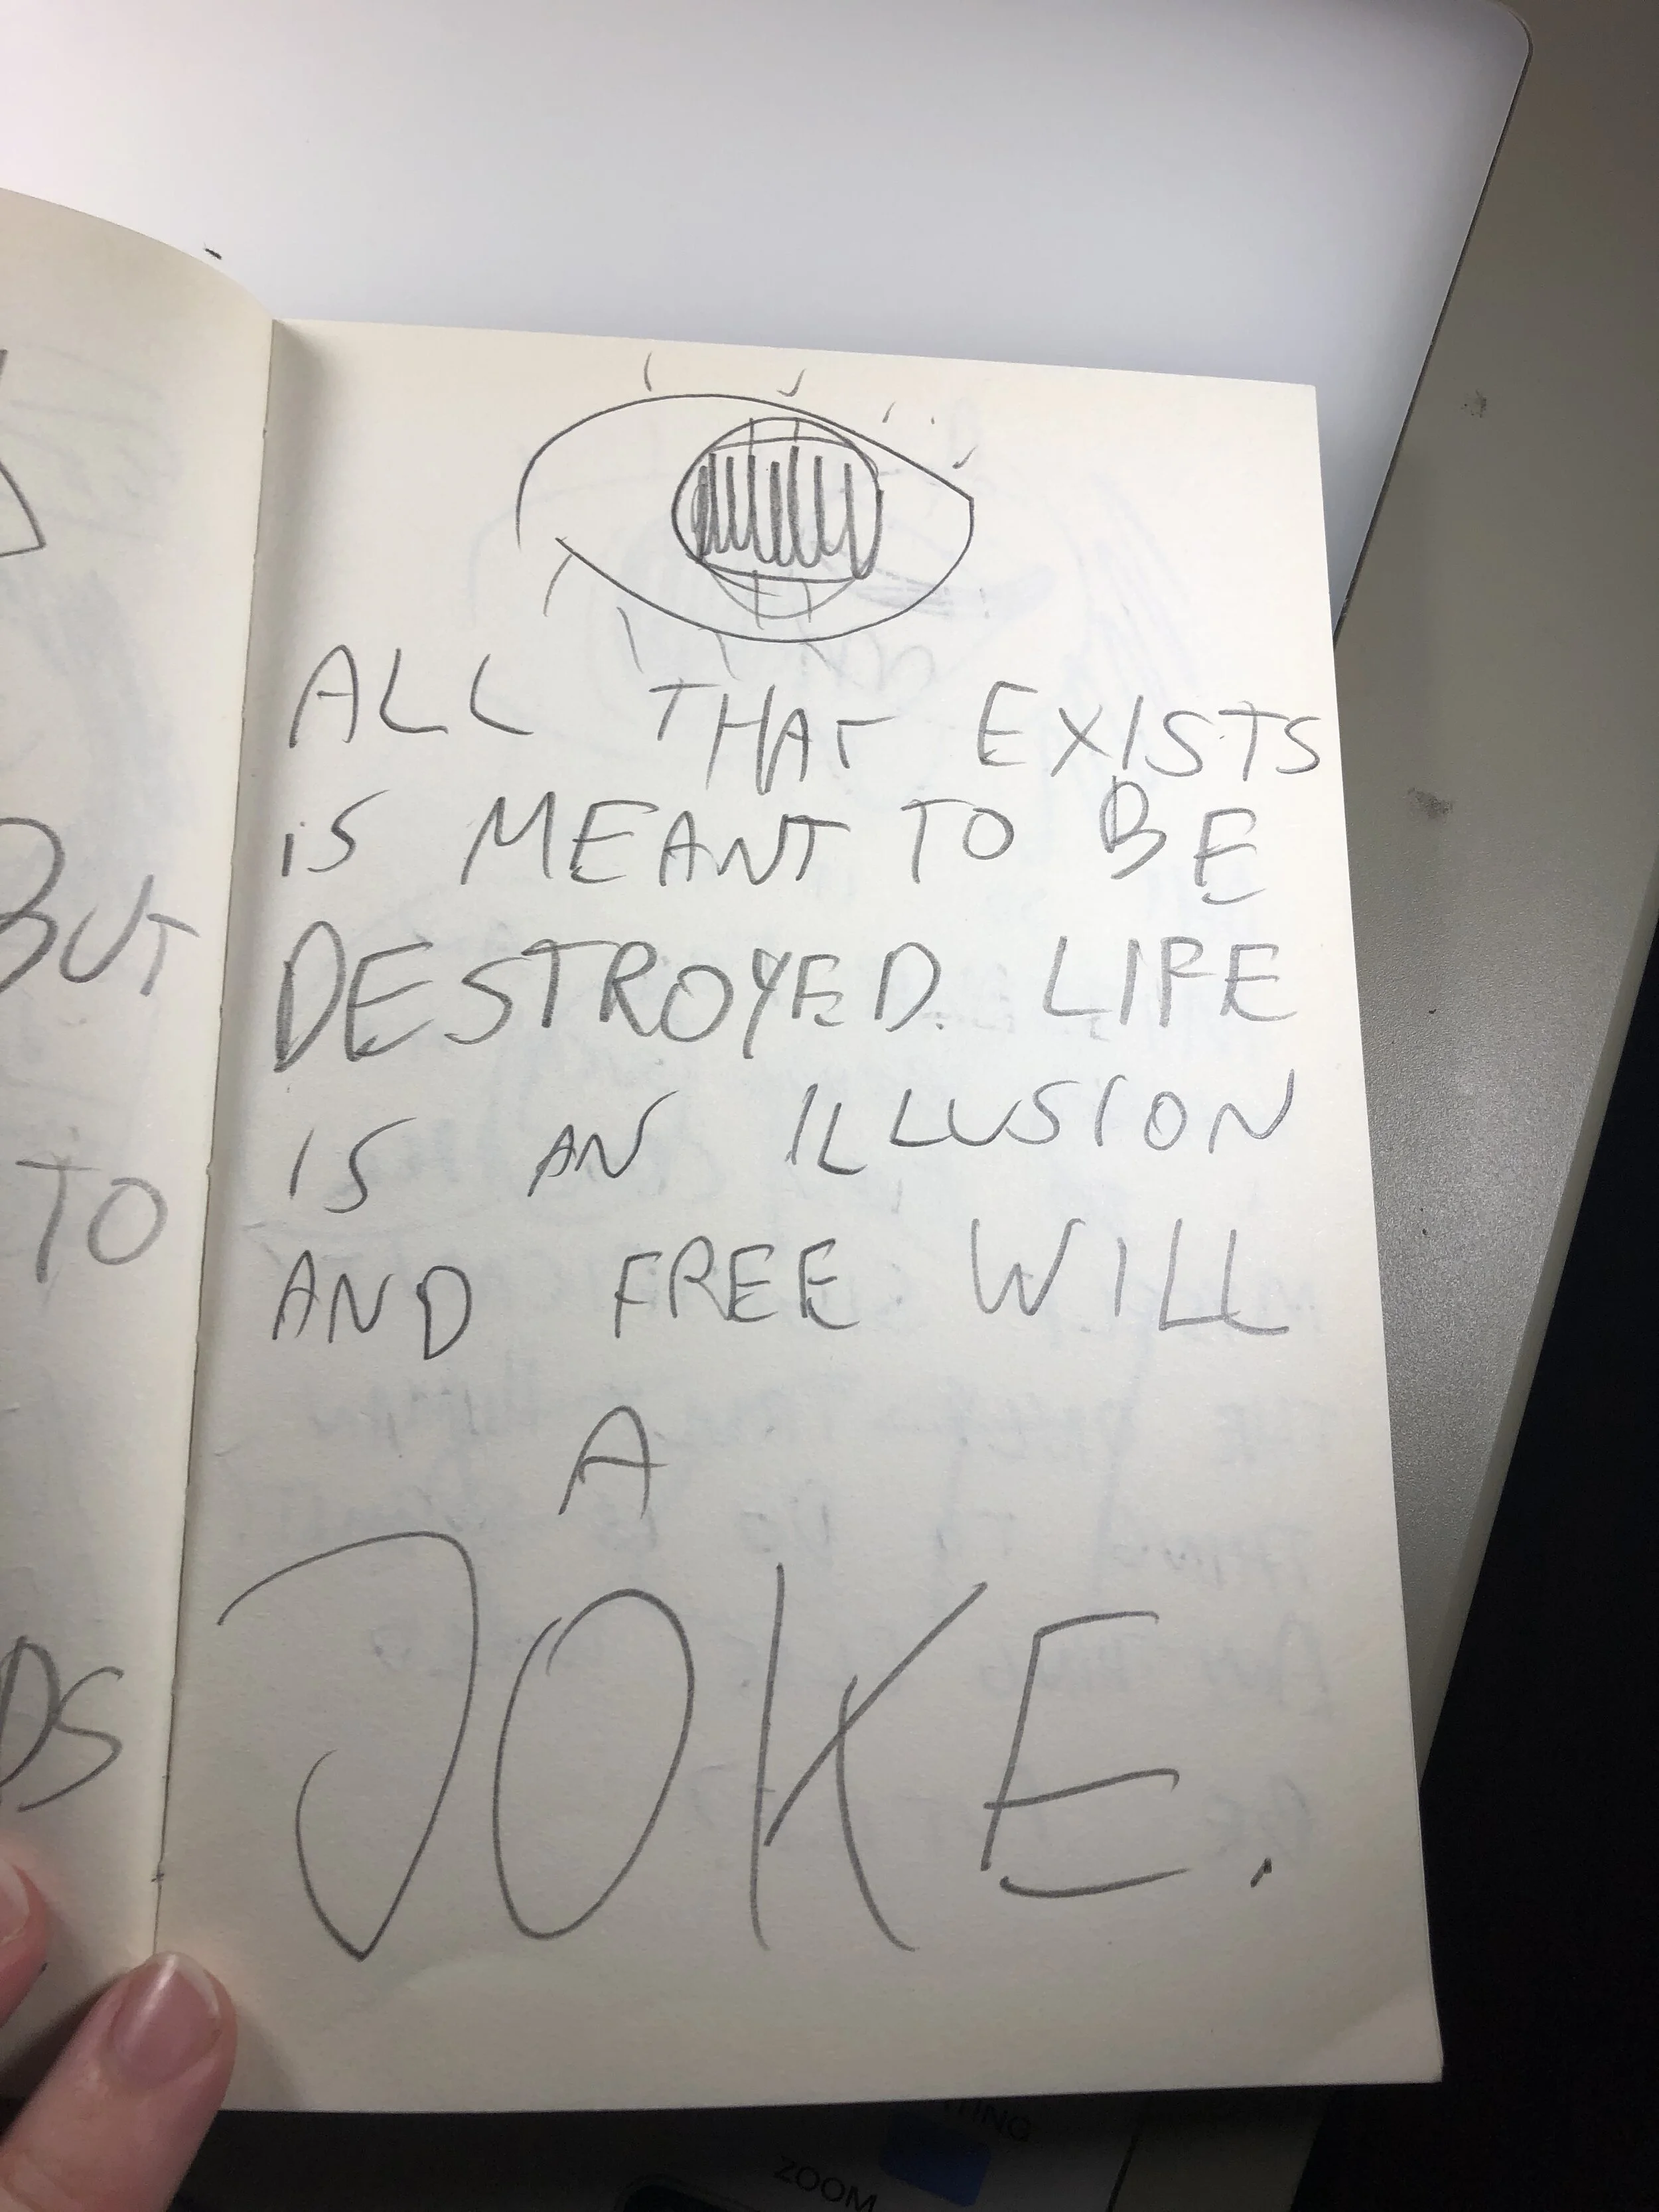 BUT
TO
DS
ALL THAT EXISTS
iS MEANT TO BE
DESTROYED. LIFE
IS AN ILLUSION
AND FREE WILL
A
JOKE.
ZOOM